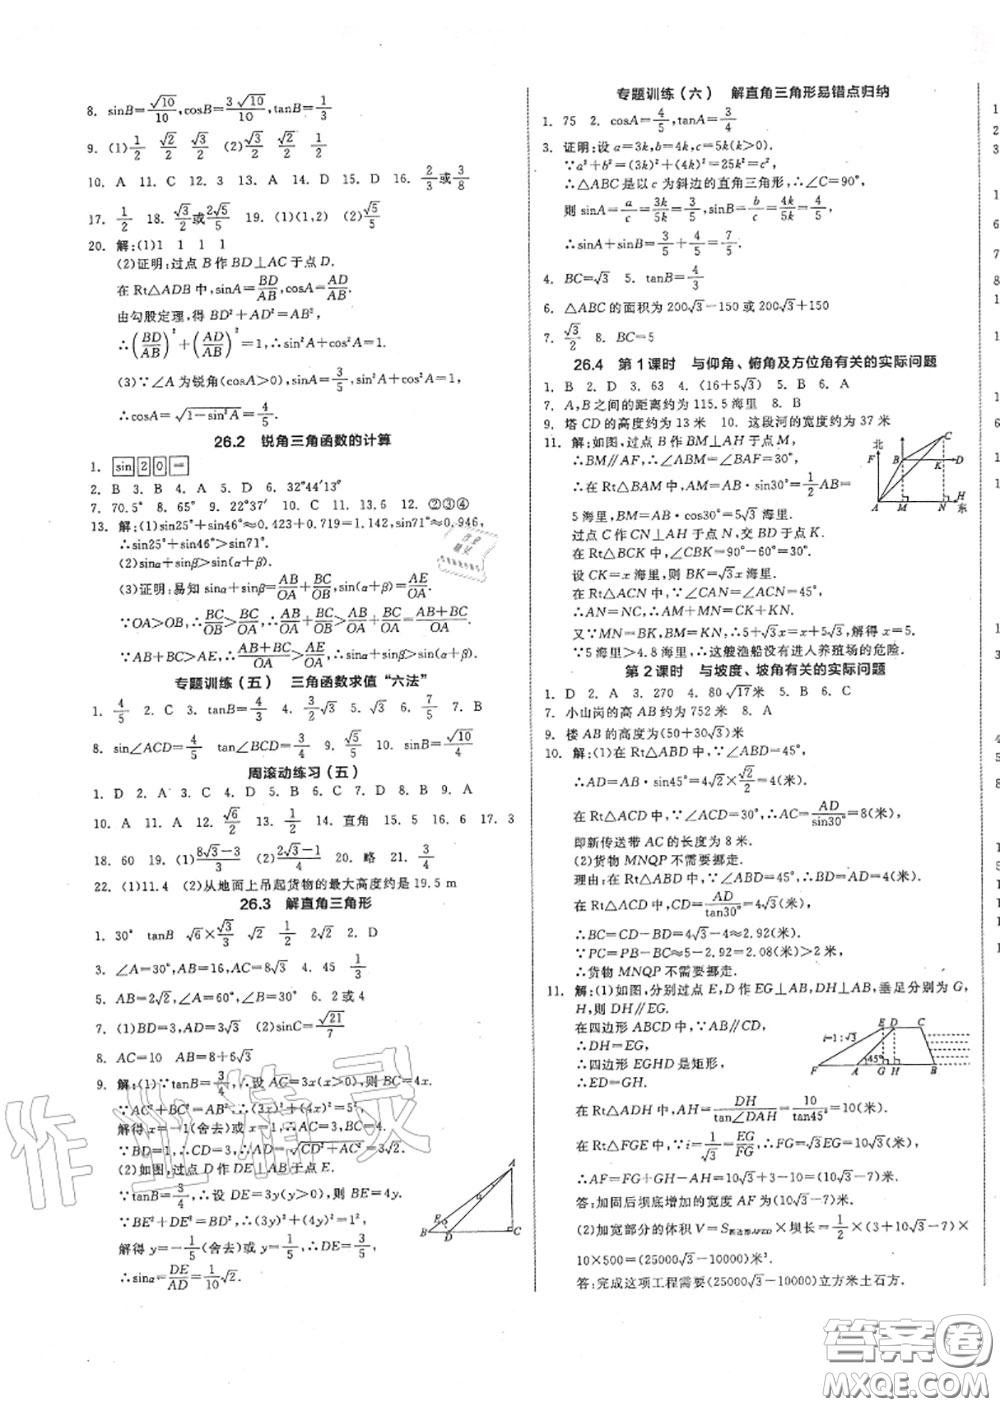 8. sinB=√10/10, cosB=3√10/10, tanB=1/3
9. (1)1/2 √2/2 √2/2 (2)√3/2 1/2 √3/3
10. A 11. C 12. 3 13. A 14. D 15. D 16. 2/3或3/8
17. 1/2 18. √3/2或2√5/5 19. (1)(1,2) (2)√5/5
20. 解:(1)1 1 1 1
(2)证明:过点B作BD⊥AC于点D.
在Rt△ADB中,sinA=BD/AB,cosA=AD/AB.
由勾股定理,得BD²+AD²=AB²,
∴(BD/AB)²+(AD/AB)²=1,∴sin²A+cos²A=1.
(3)∵∠A为锐角(cosA>0),sinA=3/5,sin²A+cos²A=1,
∴cosA=√(1-sin²A)=4/5.
26.2 锐角三角函数的计算
1. sin 2 0 =
2. B 3. B 4. A 5. D 6. 32°44′13″
7. 70.5° 8. 65° 9. 22°37′ 10. C 11. 13.6 12. ②③④
13. 解:(1)sin25°+sin46°≈0.423+0.719=1.142,sin71°≈0.946,
∴sin25°+sin46°>sin71°.
(2)sinα+sinβ>sin(α+β)
(3)证明:易知sinα+sinβ=AB/OA+BC/OB,sin(α+β)=AE/OA.
∵OA>OB,∴BC/OB>BC/OA,∴AB/OA+BC/OB>AB/OA+BC/OA=(AB+BC)/OA.
∵AB+BC>AE,∴(AB+BC)/OA>AE/OA,∴sinα+sinβ>sin(α+β).
专题训练(五) 三角函数求值“六法”
1. 4/5 2. C 3. tanB=4/3 4. 2/3√3 5. √3 6. 7/5 7. B
8. sin∠ACD=4/5 tan∠BCD=3/4 9. √5/5 10. sinB=√10/4
周滚动练习(五)
1. D 2. A 3. C 4. D 5. A 6. C 7. D 8. B 9. A
10. A 11. A 12. √6/2 13. 1/2 14. 直角 15. 5 16. 6 17. 3
18. 60 19. (1)(8√3-3)/3 (2)(2√3-1)/4 20. 略 21. 3/4
22. (1)11.4 (2)从地面上吊起货物的最大高度约是19.5 m
26.3 解直角三角形
1. 30° tanB √6×√3/3 √2 1/2 2√2 2. D
3. ∠A=30°,AB=16,AC=8√3 4. 45 1/3
5. AB=2√2,∠A=60°,∠B=30° 6. 2或4
7. (1)BD=3,AD=3√3 (2)sinC=√21/7
8. AC=10 AB=8+6√3
9. 解:(1)∵tanB=3/4,∴设AC=3x(x>0),则BC=4x.
∵AC²+BC²=AB²,∴(3x)²+(4x)²=5²,
解得x=-1(舍去)或x=1,∴AC=3,BC=4.
∵BD=1,∴CD=3,∴AD=√(CD²+AC²)=3√2.
(2)如图,过点D作DE⊥AB于点E.
∵tanB=3/4,∴设DE=3y(y>0),则BE=4y.
∵BE²+DE²=BD²,∴(3y)²+(4y)²=1²,
解得y=-1/5(舍去)或y=1/5,∴DE=3/5,
∴sinα=DE/AD=1/10√2.
A
E
α
B
D
C
专题训练(六) 解直角三角形易错点归纳
1. 75 2. cosA=4/5,tanA=3/4
3. 证明:设a=3k,b=4k,c=5k(k>0).
∵a²+b²=(3k)²+(4k)²=25k²=c²,
∴△ABC是以c为斜边的直角三角形,∴∠C=90°,
则sinA=a/c=3k/5k=3/5,sinB=b/c=4k/5k=4/5,
∴sinA+sinB=3/5+4/5=7/5.
4. BC=√3 5. tanB=4/3
6. △ABC的面积为200√3-150或200√3+150
7. √3/2 8. BC=5
26.4 第1课时 与仰角、俯角及方位角有关的实际问题
1. B 2. D 3. 63 4. (16+5√3) 5. B 6. A
7. A,B之间的距离约为115.5海里 8. B
9. 塔CD的高度约为13米 10. 这段河的宽度约为37米
11. 解:如图,过点B作BM⊥AH于点M,
∴BM∥AF,∴∠ABM=∠BAF=30°.
在Rt△BAM中,AM=AB·sin30°=1/2AB=
5海里,BM=AB·cos30°=5√3海里.
过点C作CN⊥AH于点N,交BD于点K.
在Rt△BCK中,∠CBK=90°-60°=30°.
设CK=x海里,则BK=√3x海里.
在Rt△ACN中,∵∠CAN=∠ACN=45°,
∴AN=NC,∴AM+MN=CK+KN.
又∵MN=BK,BM=KN,∴5+√3x=x+5√3,解得x=5.
∵5海里>4.8海里,∴这艘渔船没有进入养殖场的危险.
北
F
C
B
K
D
A
M
N
H
东
第2课时 与坡度、坡角有关的实际问题
1. D 2. A 3. 270 4. 80√17米 5. B 6. C
7. 小山岗的高AB约为752米 8. A
9. 楼AB的高度为(50+30√3)米
10. 解:(1)在Rt△ABD中,∵∠ABD=45°,
∴AD=AB·sin45°=4√2×√2/2=4(米).
在Rt△ACD中,∵∠ACD=30°,∴AC=AD/sin30°=8(米),
即新传送带AC的长度为8米.
(2)货物MNQP不需要挪走.
理由:在Rt△ABD中,∵∠ABD=45°,∴BD=AD=4米.
在Rt△ACD中,CD=AD/tan30°=4√3(米),
∴BC=CD-BD=4√3-4≈2.92(米).
∵PC=PB-BC≈5-2.92=2.08(米)>2米,
∴货物MNQP不需要挪走.
11. 解:(1)如图,分别过点E,D作EG⊥AB,DH⊥AB,垂足分别为G,
H,则DH∥EG.
在四边形ABCD中,∵AB∥CD,
∴DH=EG.
∴四边形EGHD是矩形,
∴ED=GH.
在Rt△ADH中,AH=DH/tan∠DAH=10/tan45°=10(米).
在Rt△FGE中,∵i=1/√3=EG/FG,∴FG=√3EG=10√3(米),
∴AF=FG+GH-AH=10√3+3-10=(10√3-7)米.
答:加固后坝底增加的宽度AF为(10√3-7)米.
(2)加宽部分的体积V=S四边形AFED×坝长=1/2×(3+10√3-7)×
10×500=(25000√3-10000)米³.
答:完成这项工程需要(25000√3-10000)立方米土石方.
i=1:√3
E
D
C
45°
F
A
G
H
B
作业精灵
答案圈
MXQE.COM